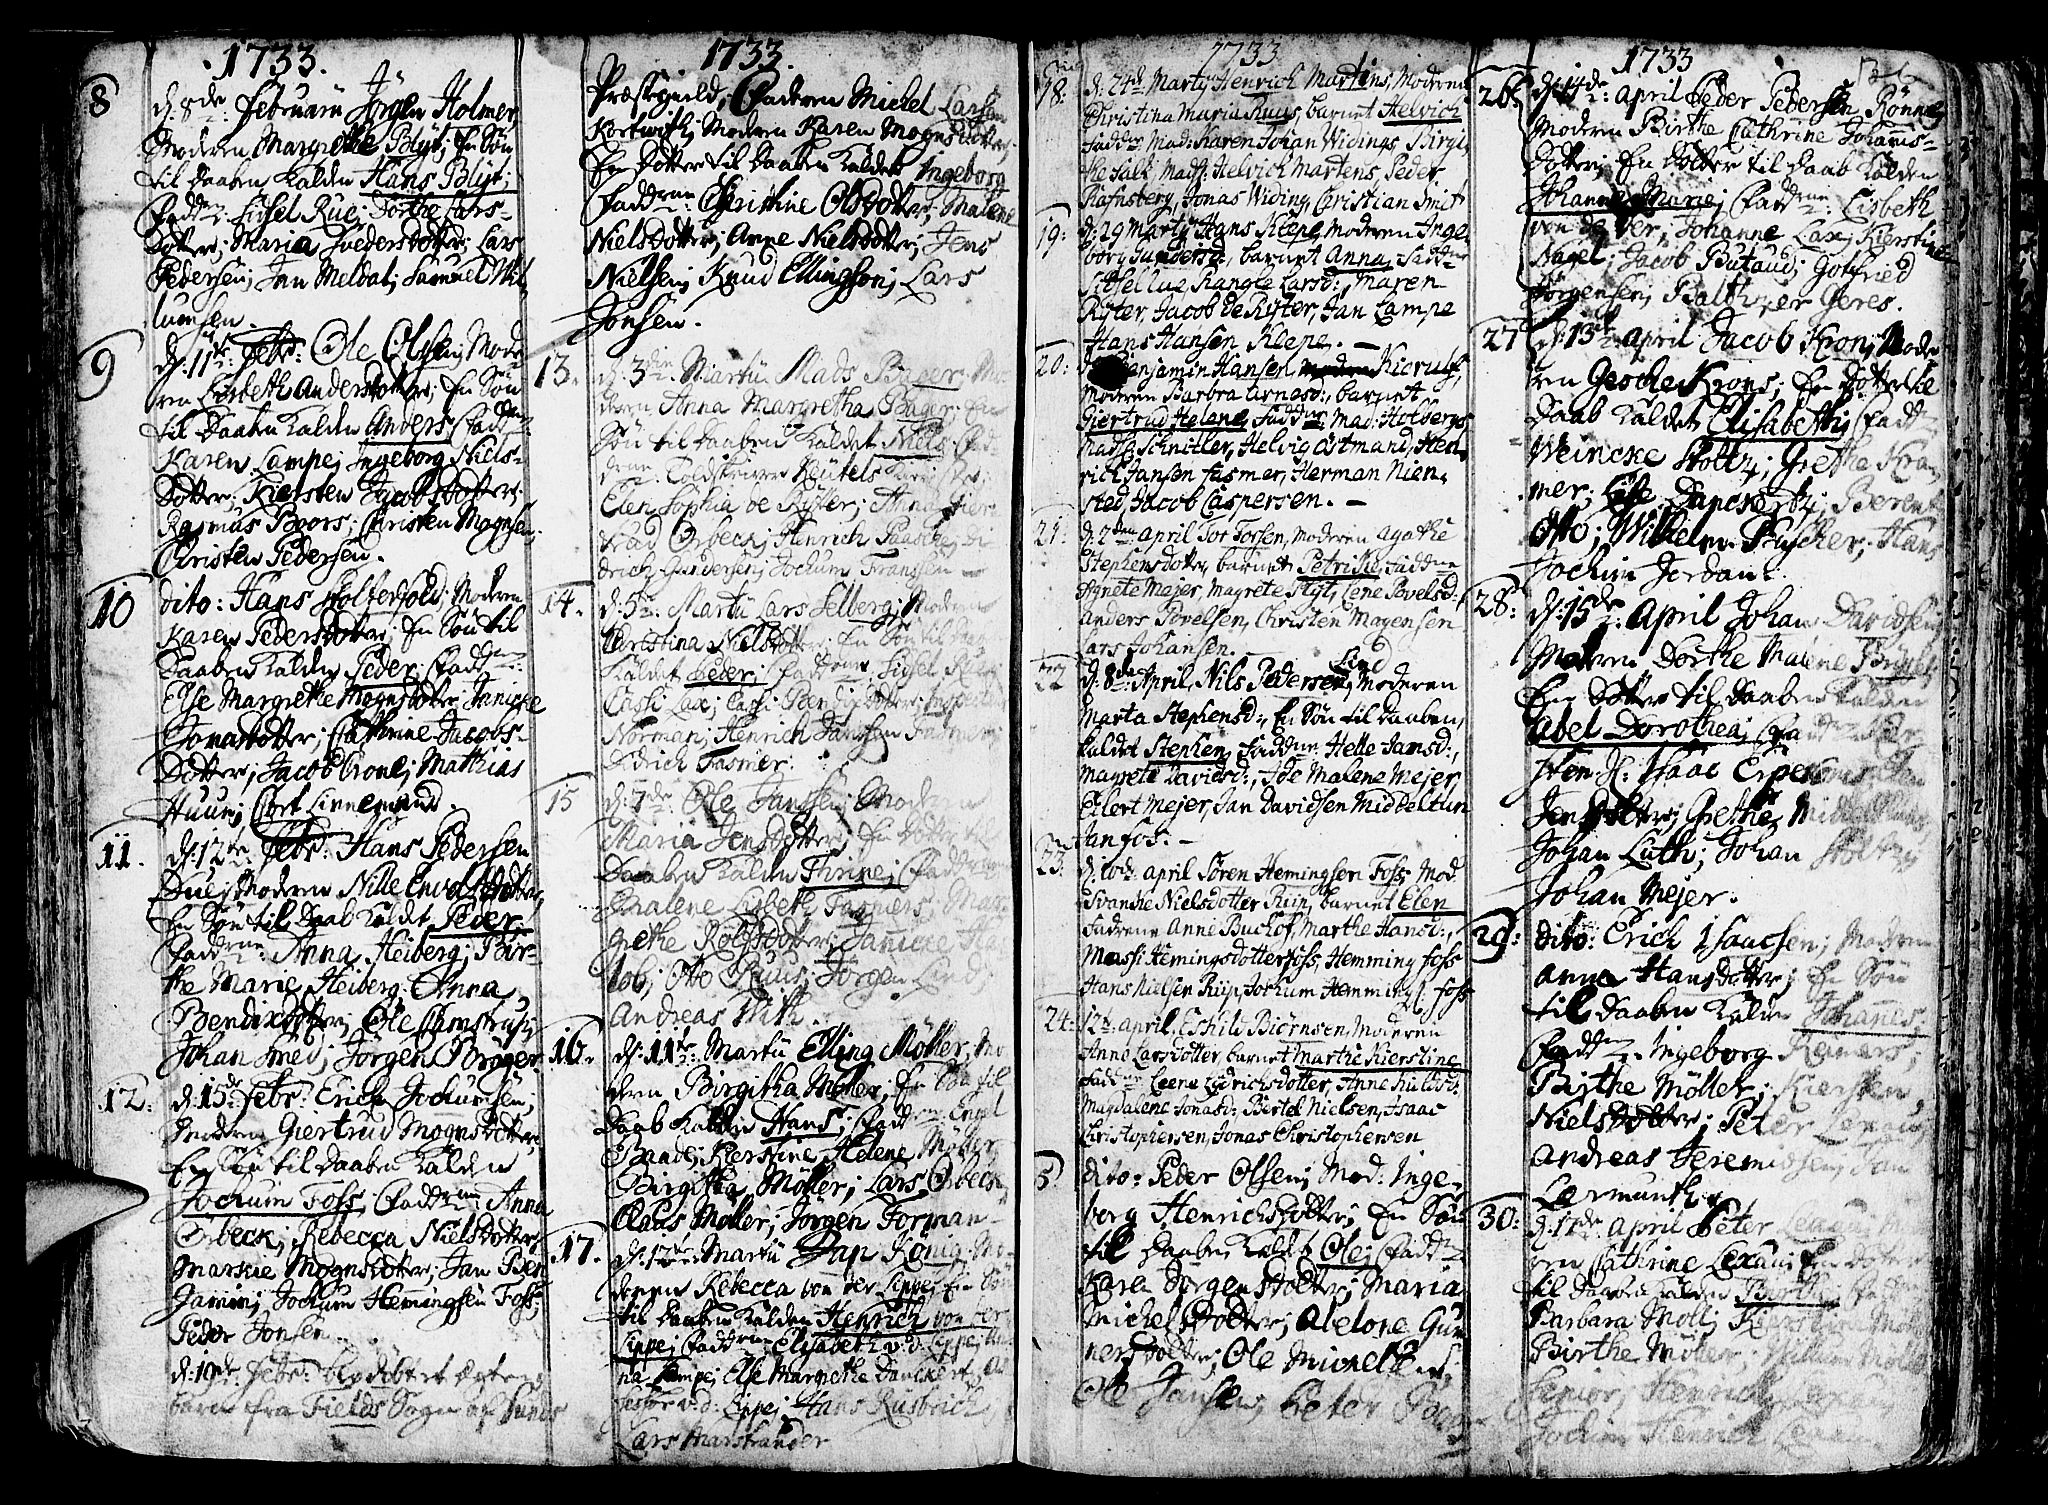 1733.
8
d: 8de: Februarii Jörgen Holmer,
Moderen Margrethe Blyt; En Sön
til Daaben kalden Hans Blyt;
Fadd: Sidsel Rue; Dorthe Lars-
dotter; Maria Sveders dotter; Lars
Pedersen; Jan Meldal; Samuel Wil
lumsen.
9
d: 11te: Febr: Ole Olsen; Mode
ren Lisbeth Andersdotter; En Sön
til Daaben kalden Anders; Fadd:
Karen Lampe; Ingeborg Niels-
dotter; Kiersten Jacobsdotter;
Rasmus Boors; Christen Mognsen
Christen Pedersen.
10
dito: Hans Holterfold; Moderen
Karen Pedersdotter; En Sön til
Daaben kalden Peder; Fadd:
Else Margrethe Mognsdotter; Jannicke
Jonasdotter; Cathrine Jacobs-
dotter; Jacob Crone; Matthias
Huur; Cort Linnemand.
11.
d: 12te: Febr: Hans Pedersen
Due; Moderen Nille
En Sön til Daab kaldet Peder
Faddrene: Anna Heiberg; Bir-
the Marie Heiberg; Anna
Bendixdotter; Ole
Johan Smed; Jörgen Bröger
12:
d: 15de: Febr: Erich Jochumsen;
Moderen Giertrud Mognsdotter;
En Sön til Daaben kalden
Jochum Foss; Faddrene: Anna
Orbeck; Rebecca Nielsdotter;
Marthe Mognsdotter; Jan Ben
jamin; Jochum Hemmingsen Foss;
Peder Jonsen.
d: Febr:
barn fra Fields Sogn af
1733.
Præstegield; Faderen Michel Larsen
Kortwith; Moderen Karen Mognsdotter;
En Dotter til Daaben kaldet Ingeborg
Faddrene: Christine Olsdotter; Malene
Nielsdotter; Anne Nielsdotter; Jens
Nielsen; Knud Ellingsön; Lars
Jonsen.
13.
d: 3die: Martii Mads Bager; Mo-
deren Anna Margretha Bager; En
Sön til Daaben kaldet Niels; Fad-
drene:
Elen Sophia de Ryter; Anna Gier
trud Orbeck; Henrich Paasche; Di
drich Gundersen; Jochum Franssen
14.
d: 5te: Martii Lars Selberg; Moderen
Christina Nielsdotter; En Sön til Daab
kaldet Peder; Faddrene: Sidsel Rue
Lax; Bendixdotter; Inspecteur
Norman; Henrich Janssen Fasmer;
Didrich Fasmer.
15
d: 7de: Ole Janssen; Moderen
Maria Jensdotter; En Dotter til
Daaben kalden Thrine; Faddrene
Malene Lisbeth Fasmers; Mar
grethe Rolfsdotter; Janicke Has
lob; Otto Ruus; Jörgen Lind;
Andreas With.
16.
d: 11te: Martii Elling Möller; Mo
deren Birgitha Möller; En Sön til
Daab kalden Hans; Faddrene: Engel
Baade; Kierstine Helene Möller
Birgitta Möller; Lars Orbeck;
Claus Möller; Jörgen Forman-
17.
d: 12te: Martii Jan König; Mo-
deren Rebecca von der Lippe; En Sön
til Daaben kalden Henrich von der
Lippe; Faddrene: Elisabeth v: d: Lippe; An
na Lampe; Else Margrethe Danckert; As
sessor v: d: Lippe; Hans Rusbrich
Lars Marstrander
1733
18.
d: 24de Marty Henrich Martins, Moderen
Christina Maria Ruus, barnet Helvich
Fadd: Mad: Karen Johan Widings, Birgi
the Falk, Mad: Helvich Martens, Peder
Rafnsberg, Jonas Widing, Christian Smit
19:
d: 29 Marty Hans Kiepe, moderen Inge
borg Gundersd:, barnet Anna, Fadd:
Sidsel Lue, Rangle Larsd:, Maren
Ryter, Jacob de Ryter, Jan Lampe
Hans Hansen Kiepe. —
20:
Benjamin Hansen Kierulf,
Moderen Barbra Arnesd:, barnet
Giertrud Helene, Fadd: Mad: Holbergs,
Mad: Schnitler, Helvig Östmand, Hen
rich Jansen Fasmer, Herman Nien-
sted, Jacob Caspersen. —
21:
d: 2den April Tor Torsen, moderen Agathe
Stephensdotter, barnet Petrike, Fadd:
Agnete Mejer, Magrete Flyt, Lene Povelsd:
Anders Povelsen, Christen Mogensen
Lars Johansen. —
22
d: 8de April, Nils Pedersen Lind, Moderen
Marta Stephensd:, En Sön til Daaben,
kaldet Stephen, Fadd: Helle Jansd:,
Magrete Davidsd:, Ide Malene Mejer
Eilert Mejer, Jan Davidsen Middeltun
Jan Fos. —
23.
d: 10de April Sören Hemingsen Foss, Mod
Svanke Nielsdotter Riip, barnet Elen
Fadrene Anne Buchof, Marthe Hansd:,
Massi Hemingsdotter Foss, Hemming Foss
Hans Nielsen Riip, Jochum Hemming Foss
24:
12te April, Eskild Biörnsen, Moderen
Anne Larsdotter, barnet Marthe Kierstine
Fadd: Leene Lydrichsdotter, Anne Rulvsd:
Magdalene Jonasd: Bertel Nielsen, Isaac
Christophersen, Jonas Christophersen
5
dito: Peder Olsen; Mod: Inge-
borg Henrichsdotter; En Sön
til Daaben kaldet Ole; Fadd:
Karen Jörgensdotter; Maria
Michelsdotter; Abelone Gun
nersdotter; Ole Michelsen;
Ole Jansen; Peter
1733
26
d: 14de: April Peder Pedersen Rönne;
Moderen Birthe Cathrine Johannis-
dotter; En Dotter til Daab kalden
Johanne Marie; Fadd: Lisbeth
von der Johanne Lax; Kierstine
Nagel; Jacob Butaud; Gotfried
Jörgensen; Balthzer Geres.
27
d: 13de April Jacob Kron; Mode
ren Gesche Krons; En Dotter til
Daab kaldet Elisabeth; Fadd:
Weincke Stoltz; Grethe Kra
mer; Else Danckertz; Berent
Otto; Wilhelm Fischer; Hans
Jochim Jordan.
28:
d: 15de: April Johan Davidsen
Moderen Dorthe Malene
En Dotter til Daaben kalden
Abel Dorothea; Fadd:
Isaac
Jensdotter; Grethe Middelthun;
Johan Luth; Johan Stoltz;
Johan Mejer.
29:
dito: Erich Isaacsen; Moderen
Anna Hansdotter; En Sön
til Daaben kalden Johanes
Fadd: Ingeborg
Birthe Möller; Kiersten
Nielsdotter; Peter Lexau
Andreas Jeremidsen; Jan
Lermunth
30:
d: 17de April Peter Lexau; Mo
ren Cathrine Lexau; En dotter
til Daaben kalden Birthe
Barbara Moll;
Birthe Möller; Willum Möller
Senior; Henrich
Jochim Henrich Lexau